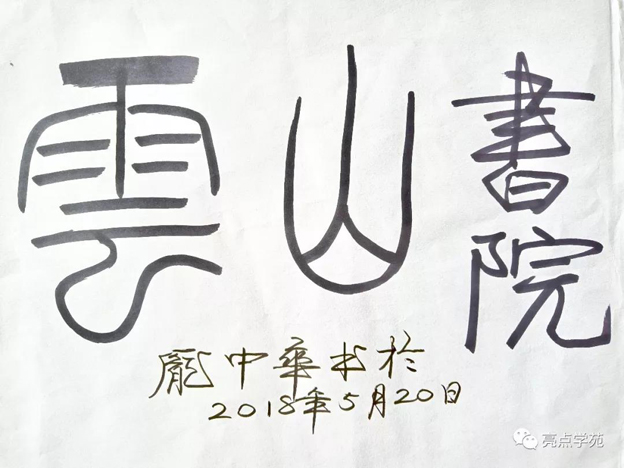 雲山書院
龐中華书於
2018年5月20日
亮点学苑